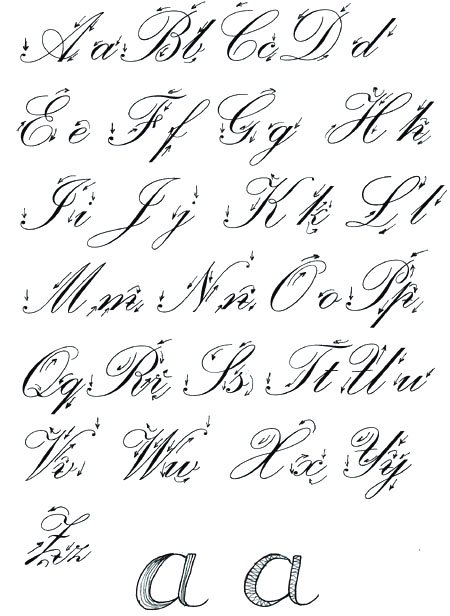 Aa Bb Cc Dd
Ee Ff Gg Hh
Ii Jj Kk Ll
Mm Nn Oo Pp
Qq Rr Ss Tt Uu
Vv Ww Xx Yy
Zz
a a